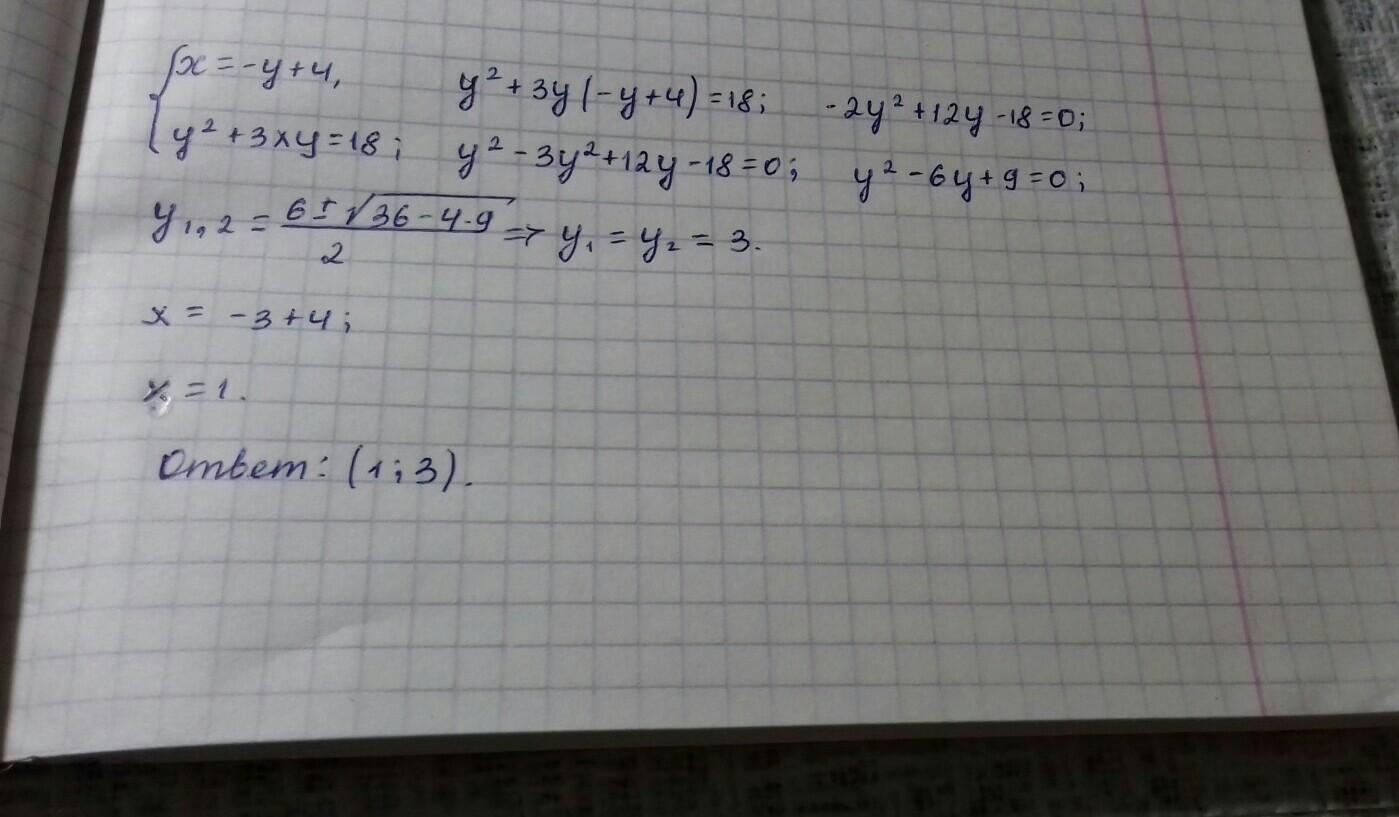 {x = -y + 4,   y² + 3y(-y+4) = 18;   -2y² + 12y - 18 = 0;
{y² + 3xy = 18;   y² - 3y² + 12y - 18 = 0;   y² - 6y + 9 = 0;
y₁,₂ = (6 ± √(36 - 4·9))/2 => y₁ = y₂ = 3.
x = -3 + 4;
x = 1.
Ответ: (1; 3).